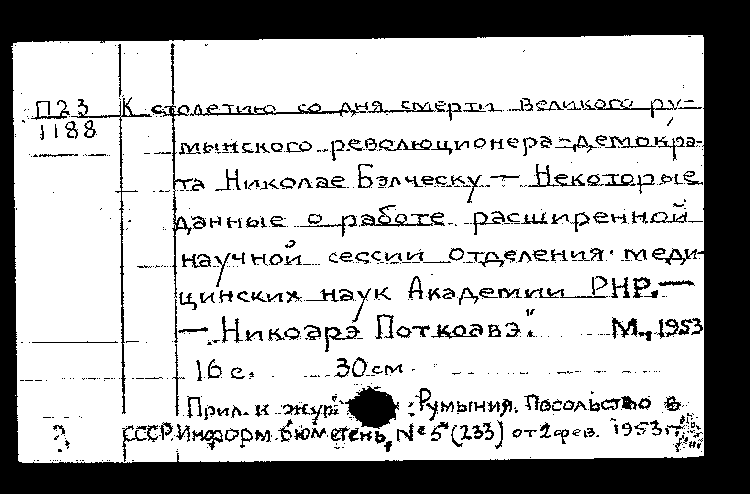 П23 К столетию со дня смерти великого ру-
1188
мынского революционера-демокра-
та Николае Бэлческу — Некоторые
данные о работе расширенной
научной сессии отделения меди-
цинских наук Академии РНР. —
— „Никоарэ Поткоавэ". М., 1953
16 с. 30 см.
Прил. к жур : Румыния. Посольство в
СССР. Информ. бюллетень, № 5 (233) от 2 фев. 1953 г.